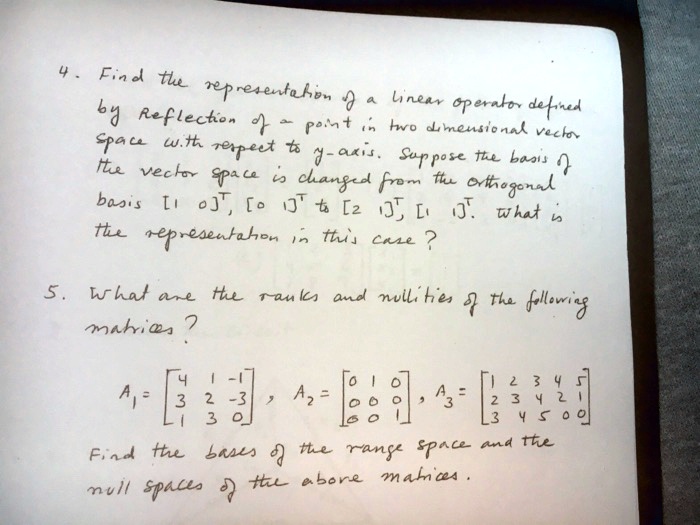 4. Find the representation of a linear operator defined
by Reflection of a point in two dimensional vector
space with respect to y-axis. Suppose the basis of
the vector space is changed from the orthogonal
basis [1 0]ᵀ, [0 1]ᵀ to [2 1]ᵀ, [1 1]ᵀ. What is
the representation in this case?
5. What are the ranks and nullities of the following
matrices?
A₁ = [4 1 -1; 3 2 -3; 1 3 0], A₂ = [0 1 0; 0 0 0; 0 0 1], A₃ = [1 2 3 4 5; 2 3 4 2 1; 3 4 5 0 0]
Find the bases of the range space and the
null spaces of the above matrices.